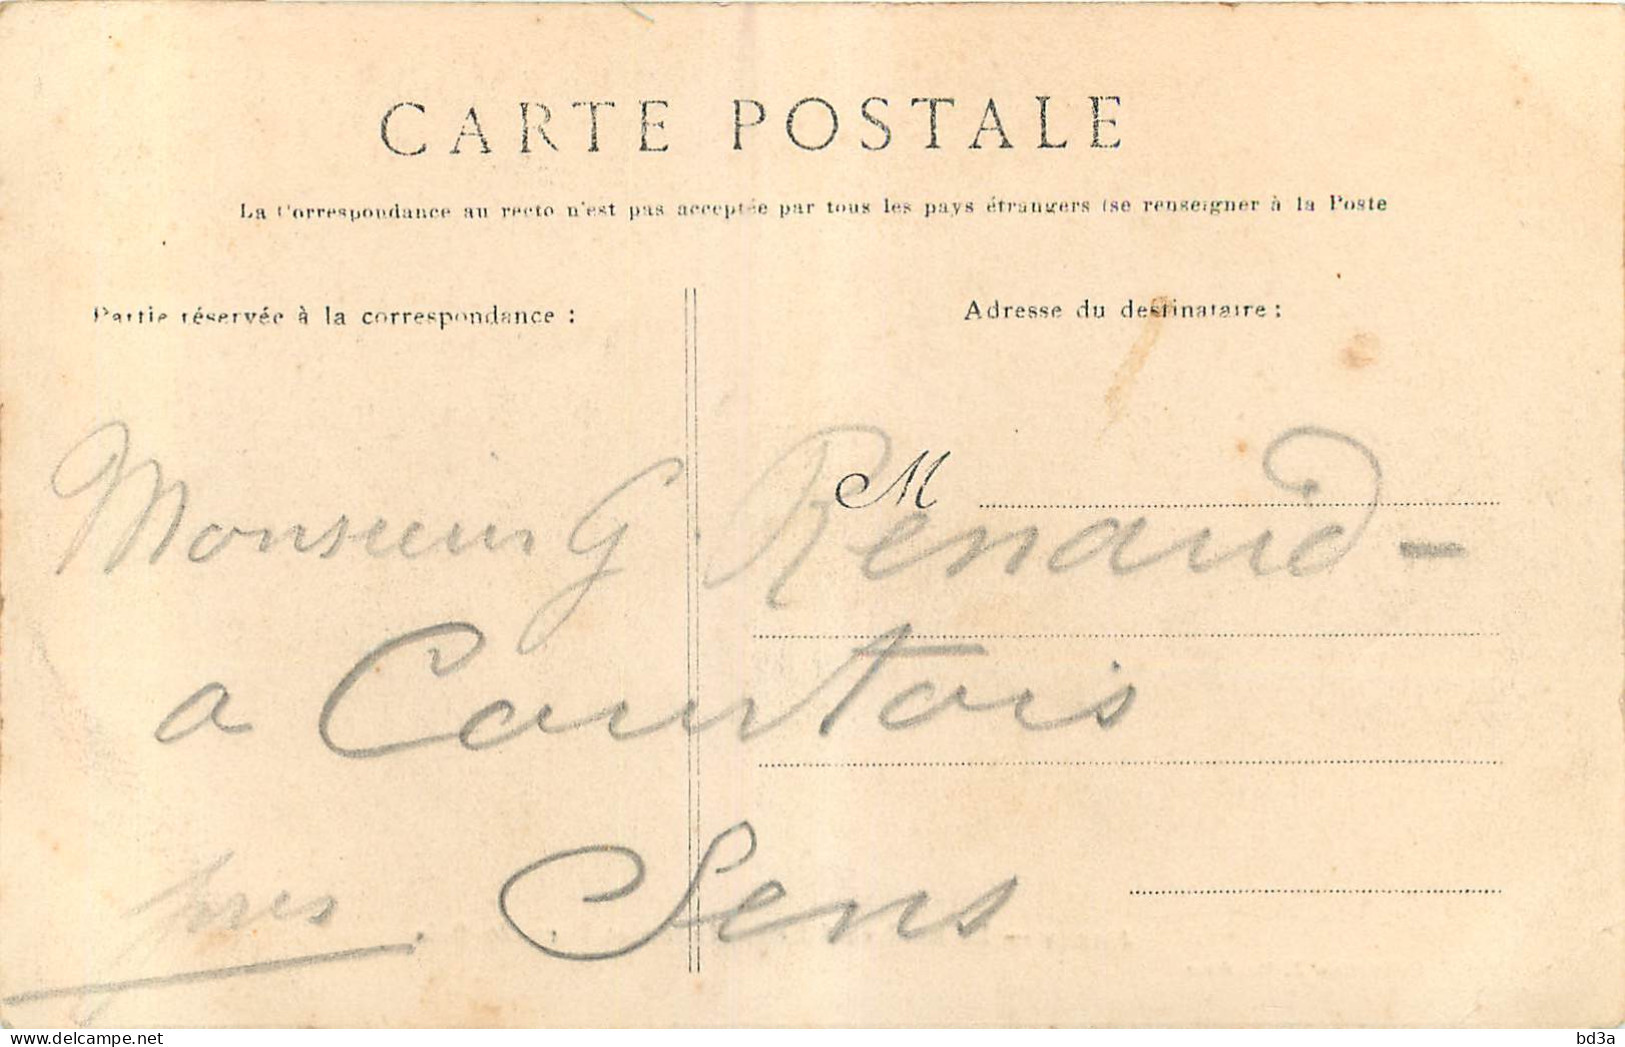 CARTE POSTALE
La Correspondance au recto n'est pas acceptée par tous les pays étrangers (se renseigner à la Poste
Partie réservée à la correspondance :
Adresse du destinataire :
M
Monsieur G Renaud -
a Courtois
pres. Sens
delcampe.net
bd3a